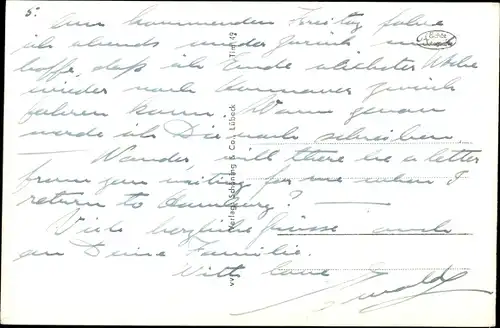 5.
Am kommenden Freitag fahre
ich abends wieder zurück und
hoffe, daß ich Ende nächster Woche
wieder nach zurück
fahren kann. Wann genau
werde ich Dir noch schreiben
— Wonder, will there be a letter
from you waiting for me when I
return to Hamburg? —
Viele herzliche Grüsse auch
an Deine Familie.
With love Ewald
Verlag Schöning & Co., Lübeck